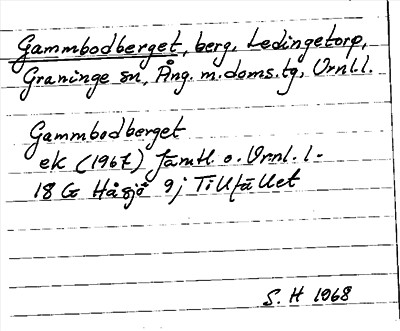 Gammbodberget, berg, Ledingetorp,
Graninge sn, Ång. m. doms.tg, Vrnl.l.
Gammbodberget
ek (1967) Jämtl. o. Vrnl. l.
18 G Håsjö 9j Tillfället
S. H 1968